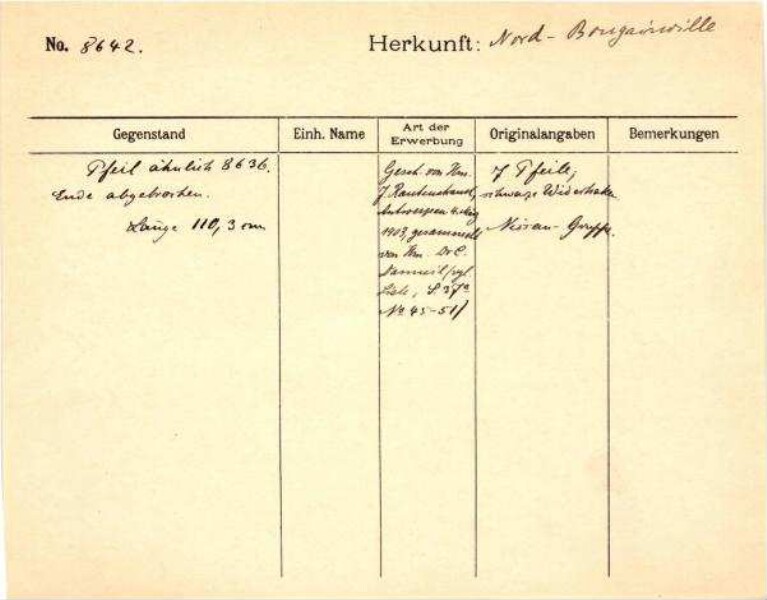 No. 8642.
Herkunft: Nord- Bougainville
Gegenstand
Einh. Name
Art der Erwerbung
Originalangaben
Bemerkungen
Pfeil ähnlich 8636.
Ende abgebrochen.
Länge 110,3 cm
Gesch. von Hrn.
J. Rautenstrauch,
Antwerpen
1903, gesammelt
von Hrn. Dr C.
Liste, S. 37a
No 45-51/
7 Pfeile,
schwarze Widerhaken.
Nissan- Gruppe.